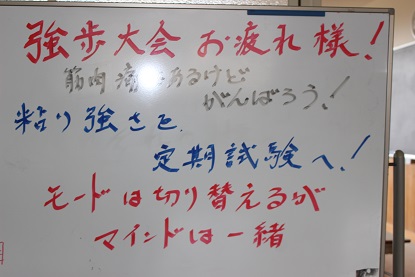 強歩大会 お疲れ様!
筋肉痛もあるけど
がんばろう!
粘り強さを
定期試験へ!
モードは切り替えるが
マインドは一緒